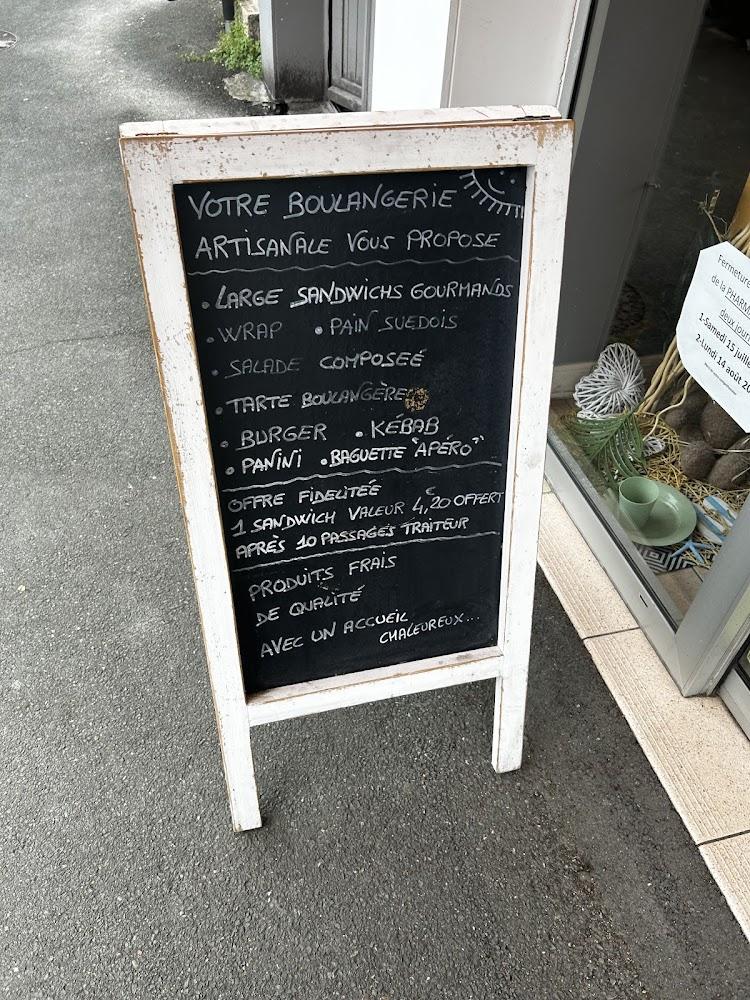 VOTRE BOULANGERIE
ARTISANALE VOUS PROPOSE
• LARGE SANDWICHS GOURMANDS
• WRAP • PAIN SUEDOIS
• SALADE COMPOSEÉ
• TARTE BOULANGÈRE
• BURGER • KÉBAB
• PANINI • BAGUETTE "APÉRO"
OFFRE FIDELITEÉ
1 SANDWICH VALEUR 4,20€ OFFERT
APRÈS 10 PASSAGES TRAITEUR
PRODUITS FRAIS
DE QUALITÉ
AVEC UN ACCUEIL
CHALEUREUX...
Fermeture
de la PHARM
deux jour
1-Samedi 15 juille
2-Lundi 14 août 20